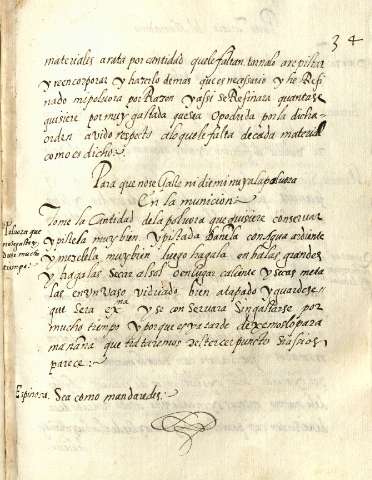 34
materiales arata por cantidad que le faltan tornalo arepistar
y reencorporar y hazerlo demas que es necesario y he Refi
nado mi poluora por Razon y assi se Refinara quanta se
quisiere por muy gastada que sea o podrida por la dicha
orden avido respecto alo que le falta de cada material
como es dicho.
Para que no se Gaste ni diminuya la poluora
En la munición
Poluora que
no se gaste y
dure mucho
tiempo.
Tome la Cantidad de la poluora que quisiere conservar
y pistela muy bien y pistada bañela con Agua ardiente
y mezclela muy bien luego hagala en balas grandes
y hagalas Secar al sol o en lugar caliente y secas meta
las en un vaso vidriado bien atapado y guardese
que sera exma y se conservara Sin gastarse por
mucho tiempo y porque es ya tarde dexemoslo para
mañana que trataremos del tercer puncto si assi os
parece:
Espinosa. Sea como mandaredes: